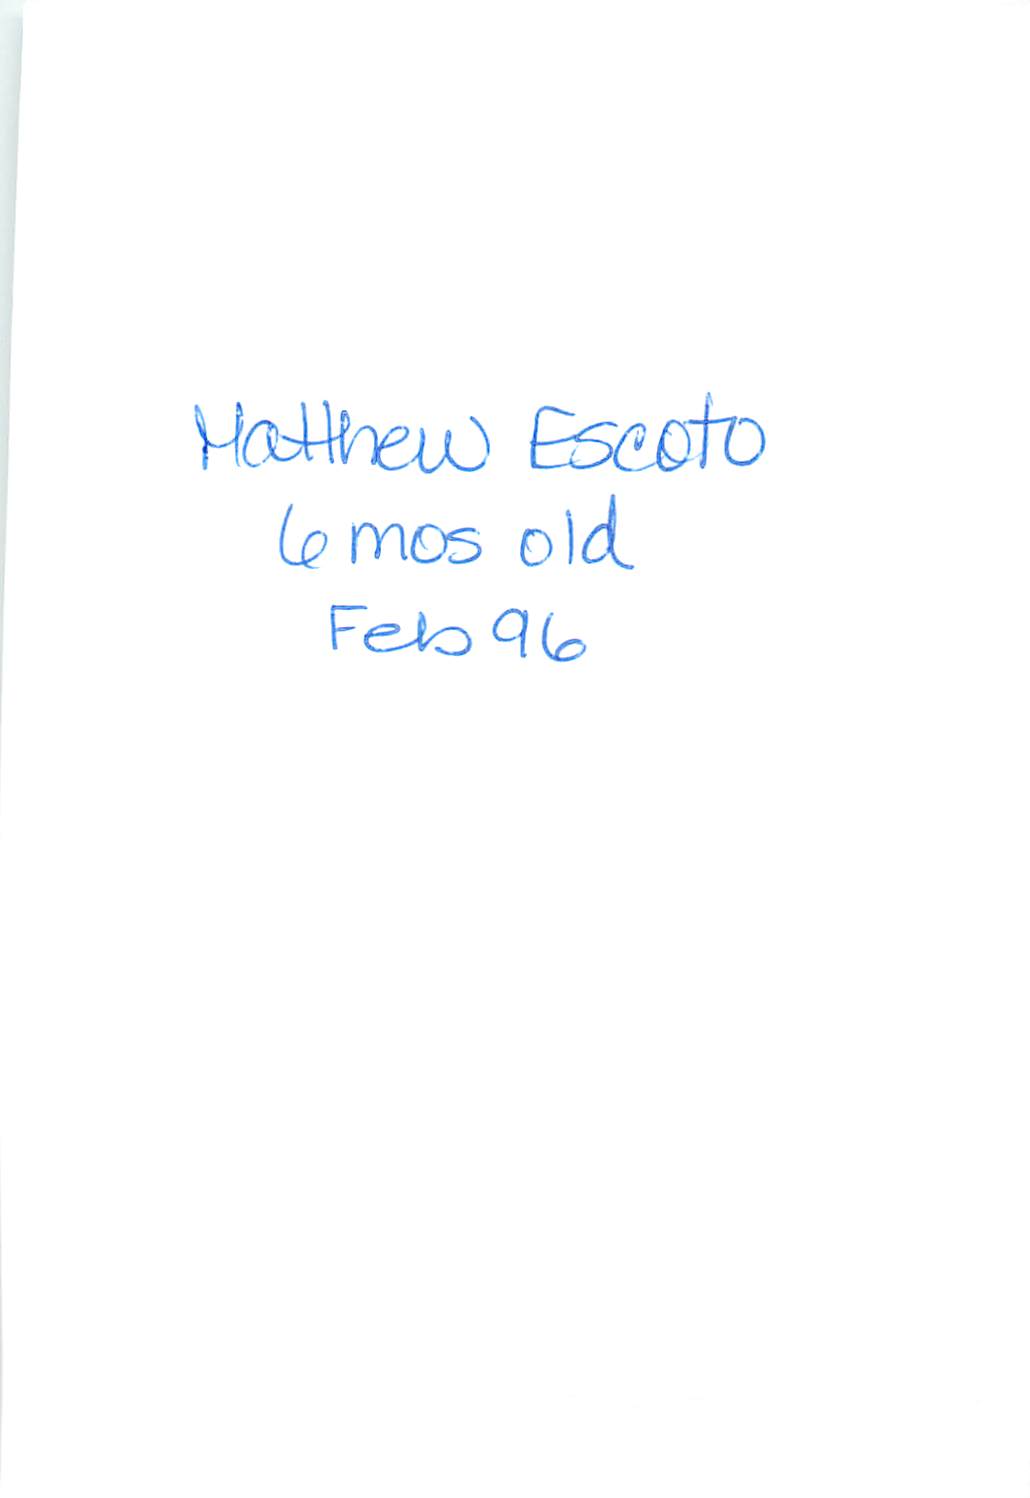 Matthew Escoto
6 mos old
Feb 96